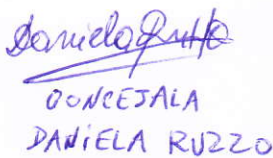 Daniela Ruzzo
CONCEJALA
DANiELA RUZZO